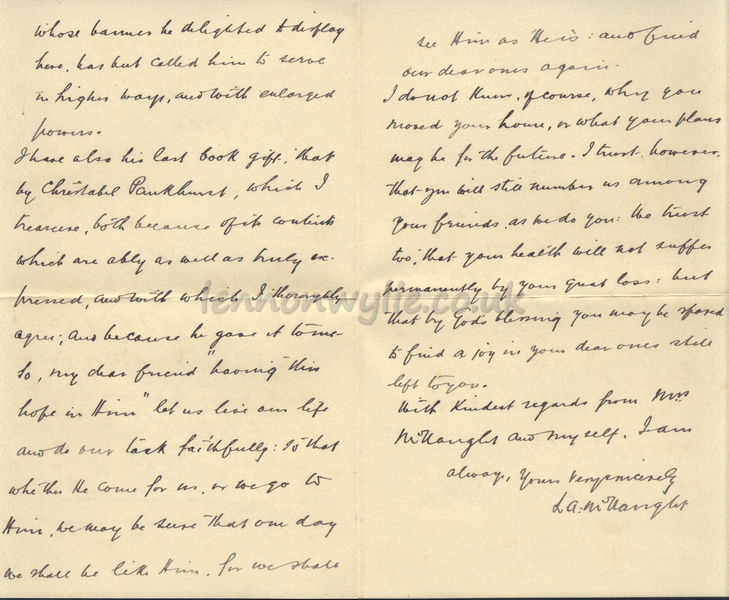 whose banner he delighted to display
here, has but called him to serve
in higher ways, and with enlarged
powers.
I have also his last book gift, that
by Christabel Pankhurst, which I
treasure, both because of its contents
which are ably as well as truly ex-
pressed, and with which I thoroughly
agree; and because he gave it to me.
So, my dear friend "having this
hope in Him" let us live our life
and do our task faithfully: so that
whether He come for us, or we go to
Him, we may be sure that one day
we shall be like Him, for we shall
see Him as He is: and find
our dear ones again.
I do not know, of course, why you
moved your home, or what your plans
may be for the future. I trust, however,
that you will still number us among
your friends, as we do you: we trust
too, that your health will not suffer
permanently by your great loss: but
that by God's blessing you may be spared
to find a joy in your dear ones still
left to you.
With kindest regards from Mrs
McNaught and myself, I am
always, Yours very sincerely
L.A. McNaught
lennonwylie.co.uk